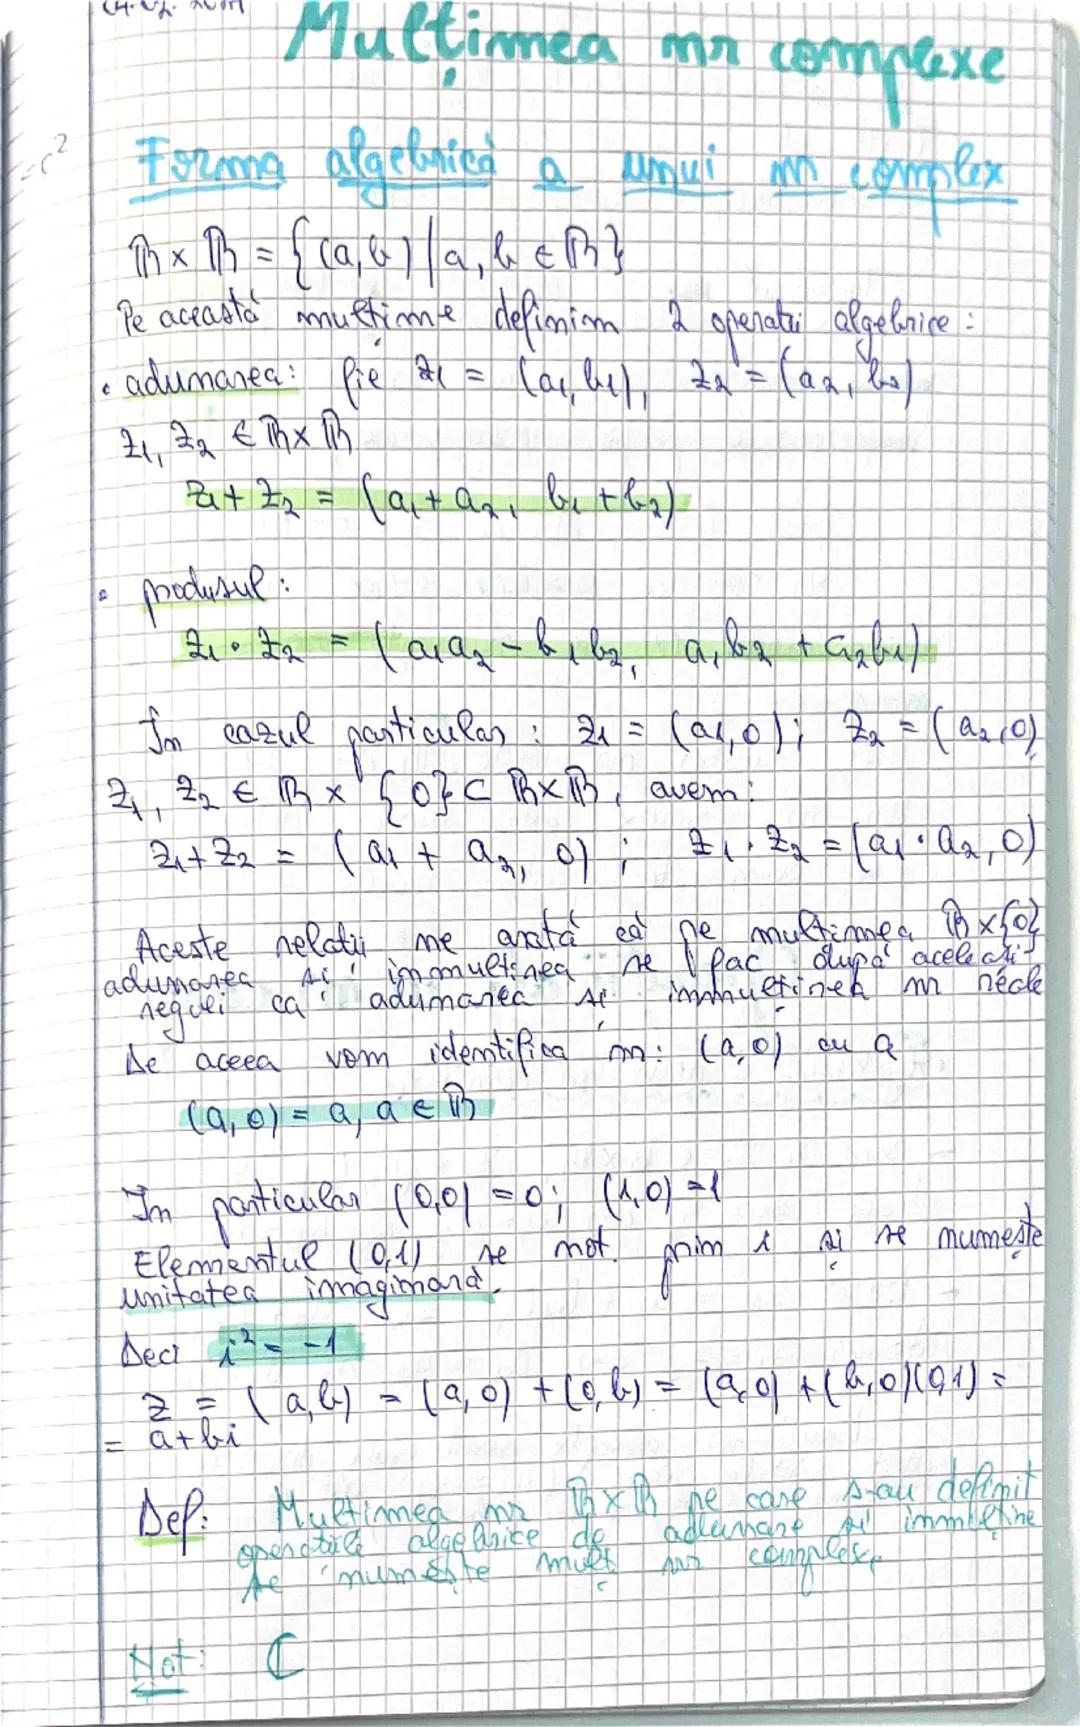 Mulțimea nr complexe
Forma algebrică a unui nr complex
ℝ x ℝ = {(a,b) | a, b ∈ ℝ}
Pe această mulțime definim 2 operații algebrice :
• adunarea: fie z₁ = (a₁, b₁), z₂ = (a₂, b₂)
z₁, z₂ ∈ ℝ x ℝ
z₁ + z₂ = (a₁ + a₂, b₁ + b₂)
• produsul :
z₁ • z₂ = (a₁a₂ - b₁b₂, a₁b₂ + a₂b₁)
În cazul particular : z₁ = (a₁,0); z₂ = (a₂,0)
z₁, z₂ ∈ ℝ x {0} ⊂ ℝ x ℝ, avem :
z₁ + z₂ = (a₁ + a₂, 0) ; z₁ · z₂ = (a₁ · a₂, 0)
Aceste relații ne arată că pe mulțimea ℝ x {0}
adunarea și înmulțirea se fac după aceleași
reguli ca adunarea și înmulțirea nr reale
De aceea vom identifica nr: (a,0) cu a
(a,0) = a, a ∈ ℝ
În particular (0,0) = 0; (1,0) = 1
Elementul (0,1) se not prim i și se numește
unitatea imaginară.
Deci i² = -1
z = (a,b) = (a,0) + (0,b) = (a,0) + (b,0)(0,1) =
= a+bi
Def: Mulțimea nr ℝ x ℝ pe care s-au definit
operațiile algebrice de adunare și înmulțire
se numește mulț nr complexe
Not: ℂ